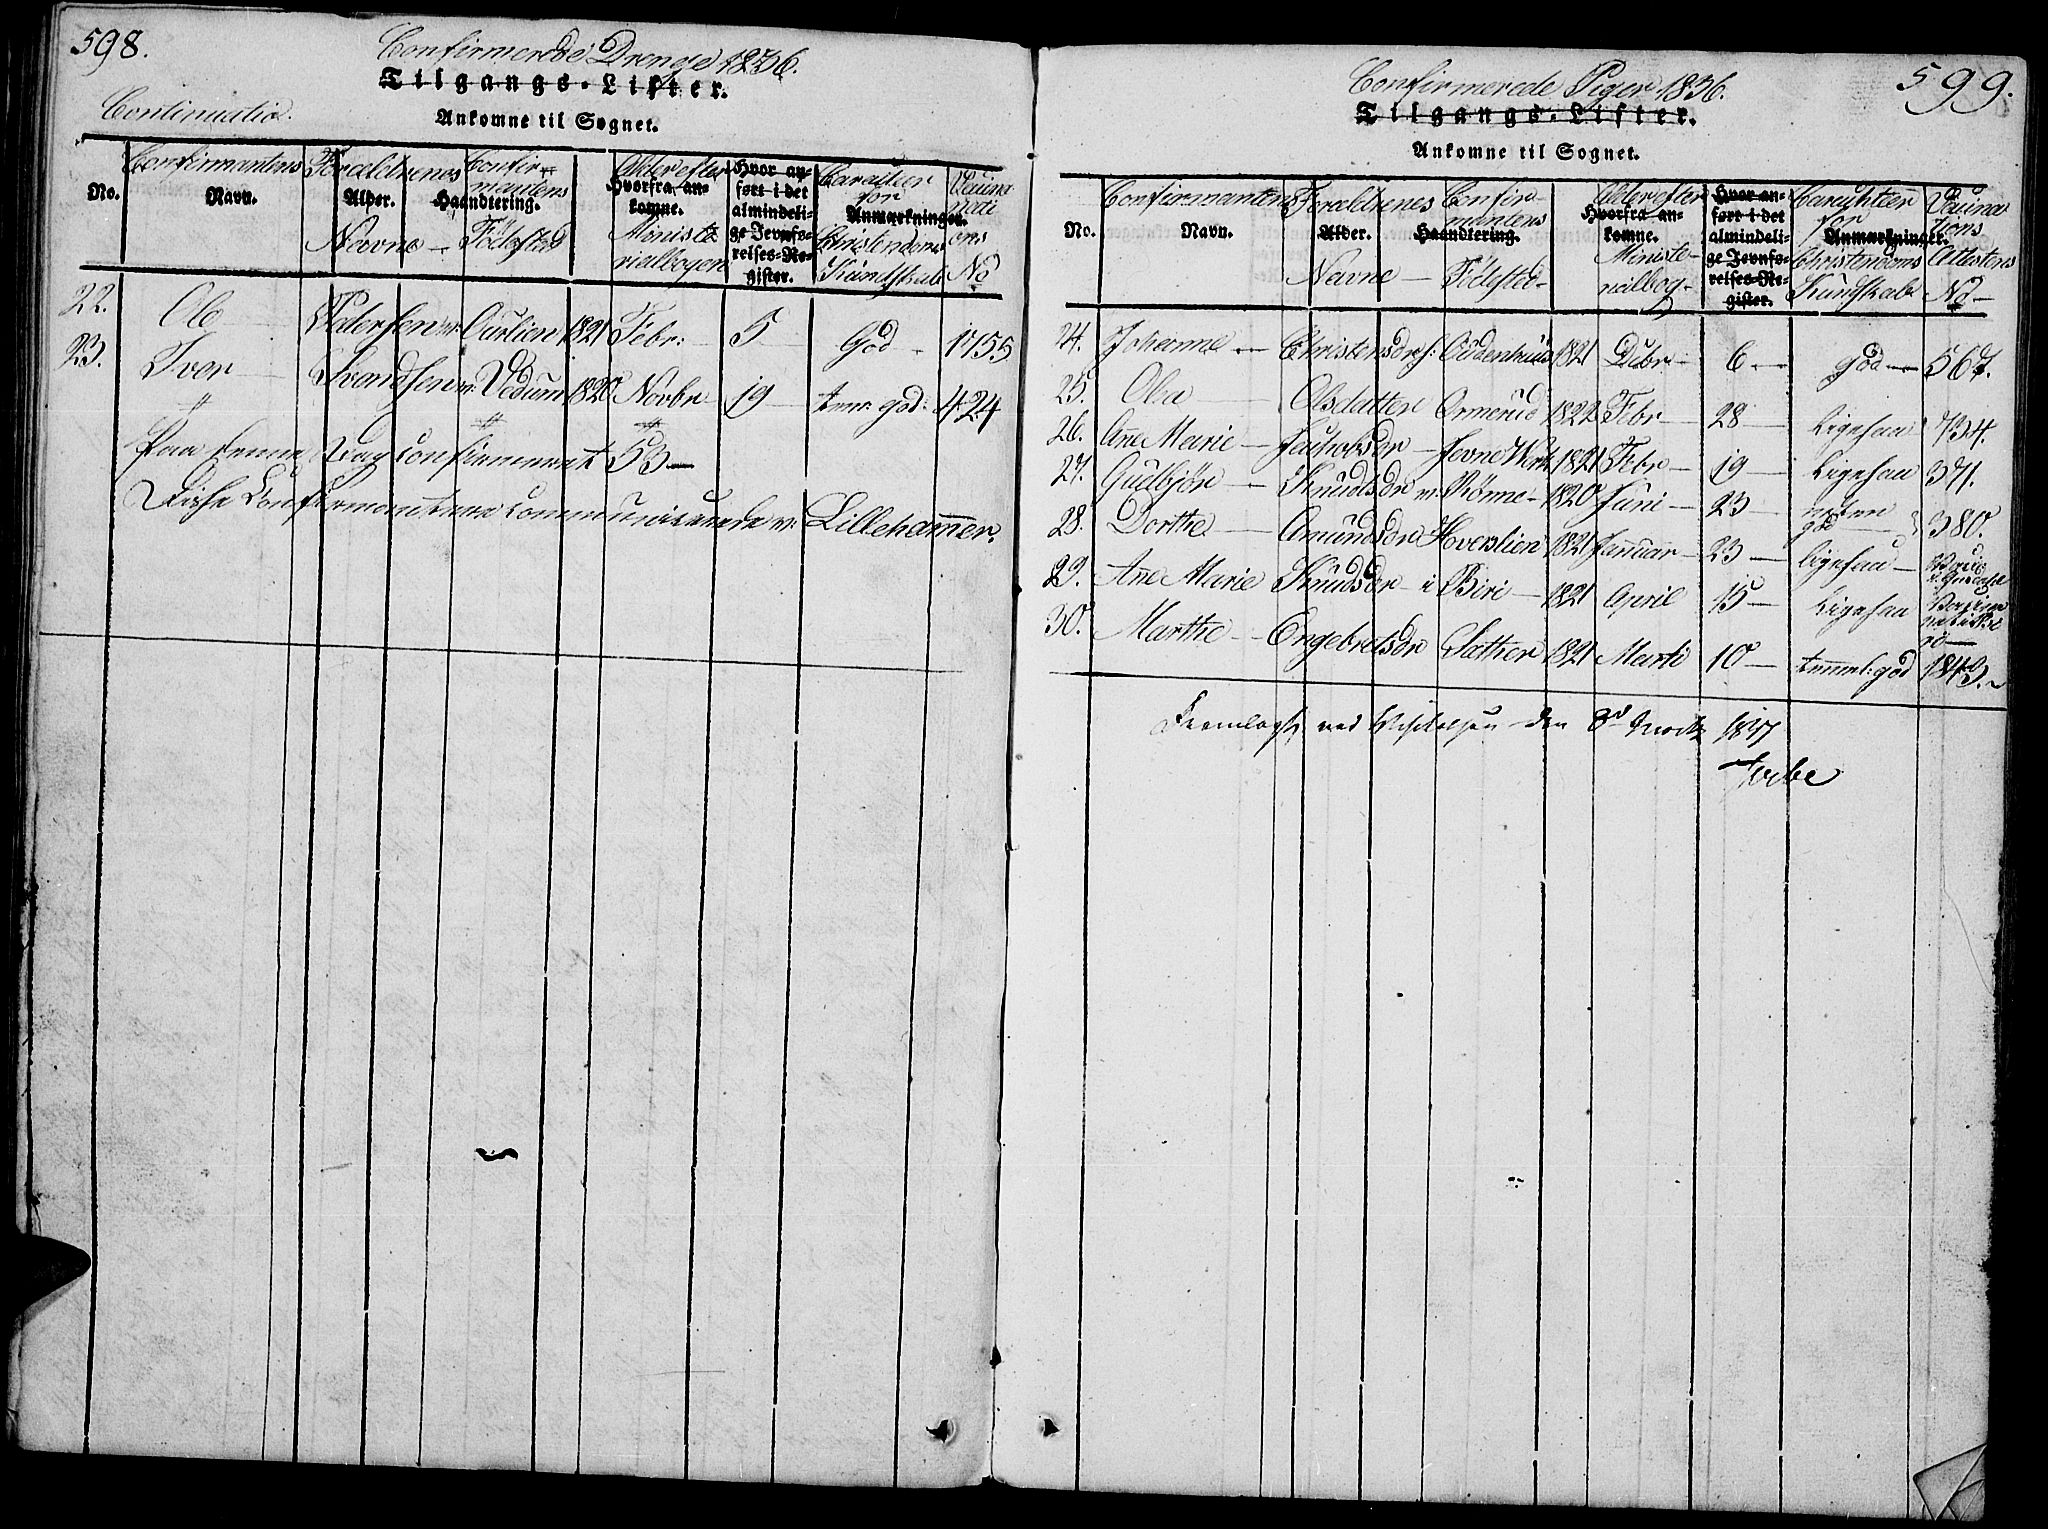 598.
Confirmerede Drenge 1836.
Tilgangs-Lister.
Continuatio.
Ankomne til Sognet.
No.
Confirmantens
Navn.
Forældrenes
Alder.
Navne
Confir-
mantens
Haandtering.
Födested
Alder efter
Hvorfra an-
komne.
Ministe
rialbogen
Hvor an-
ført i det
almindeli-
ge Jevnfø-
relses-Re-
gister.
Caracteer
for
Anmærkninger.
Christendoms
Kundskab
Vaccina
tions
No
22. Ole Pedersen 1821 Febr: 5 God 1755
23. Iver Svendsen Vedum 1820 Novbr 19 tem: god: 424
Paa denne Dag confirmeret 53
Disse Confirmantere communicerede v: Lillehammer.
599.
Confirmerede Piger 1836.
Tilgangs-Lister.
Ankomne til Sognet.
No.
Confirmantens
Navn.
Forældrenes
Alder.
Navne
Confir-
mantens
Haandtering.
Födested
Alder efter
Hvorfra an-
komne.
Ministe-
rialbog
Hvor an-
ført i det
almindeli-
ge Jevnfø-
relses-Re-
gister.
Charachteer
for
Anmærkninger.
Christendoms
Kundskab
Vaccina
tions
Attestens
No
24. Johanne Christensdr: Oddenhuus 1821 Debr 6 god 567.
25. Olea Olsdatter Ormerud 1822 Febr 28 Ligesaa 734.
26. Ane Marie Jacobsdr 1821 Febr 19 Ligesaa 371.
27. Gulbjör Knudsdr Rönne 1820 Juni 23 god 380.
28. Dorthe Amundsdr Hoverslien 1821 Januar 23 ligesaa
29. Ane Marie Knudsdr i Biri 1821 April 15 Ligesaa
30. Marthe Engebretsdr Sæther 1821 Marti 10 temmel: god 1843.
Fremlagt ved Visitatsen den 8d Marts 1847